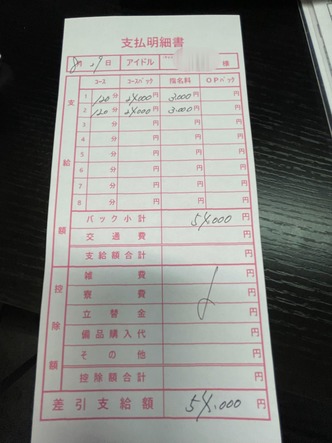 支払明細書
8月29日 アイドル 様
コース コースバック 指名料 OPバック
支給額
1 120分 24,000円 3,000円 円
2 120分 24,000円 3,000円 円
3 分 円 円 円
4 分 円 円 円
5 分 円 円 円
6 分 円 円 円
7 分 円 円 円
8 分 円 円 円
バック小計 54,000円
交通費 円
支給額合計 円
控除額
雑費 円
寮費 円
立替金 円
備品購入代 円
その他 円
控除額合計 円
差引支給額 54,000円